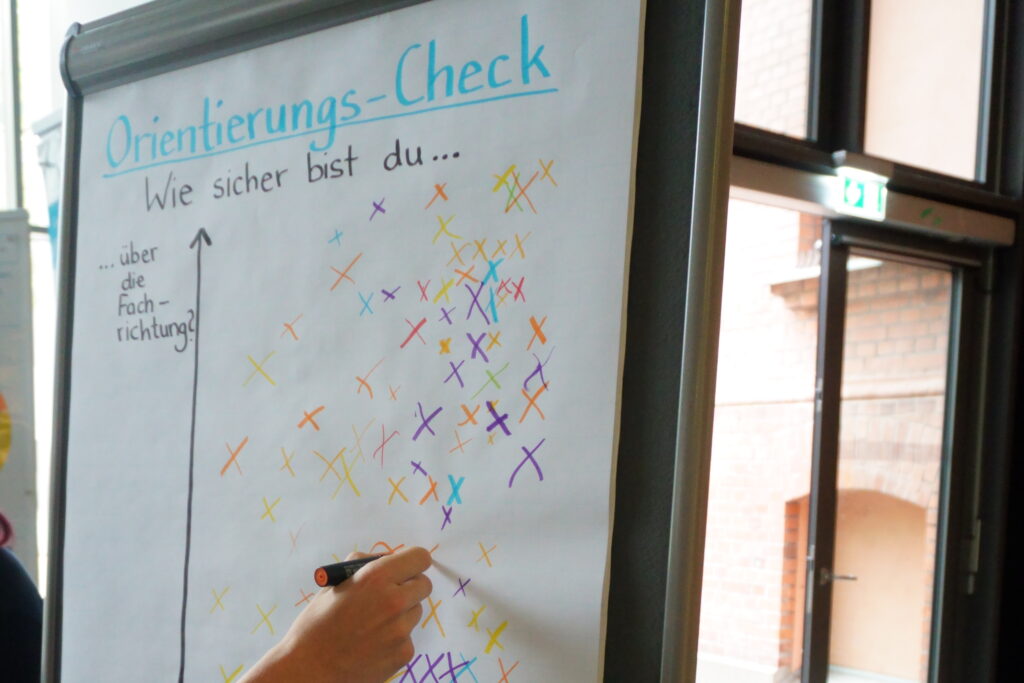 Orientierungs-Check
Wie sicher bist du...
... über
die
Fach-
richtung?